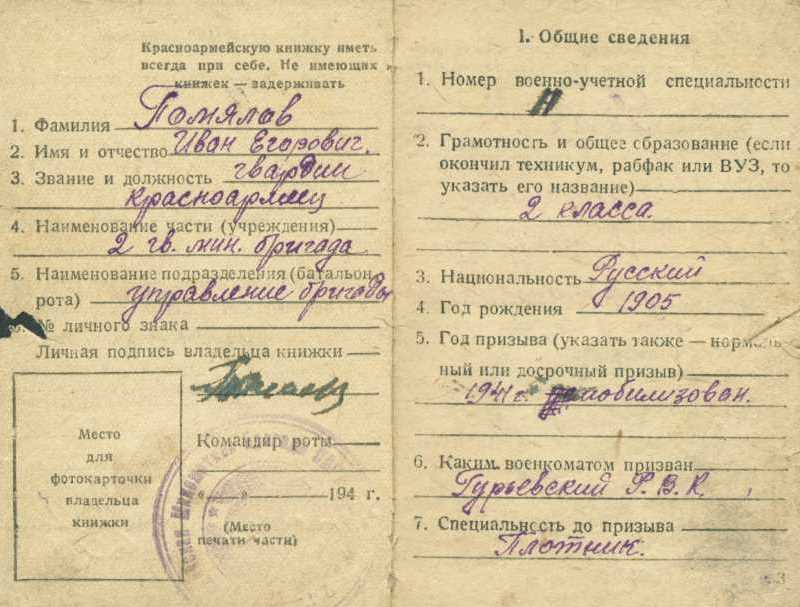 Красноармейскую книжку иметь
всегда при себе. Не имеющих
книжек — задерживать
1. Фамилия Помялов
2. Имя и отчество Иван Егорович.
3. Звание и должность гвардии
красноармеец
4. Наименование части (учреждения)
2 гв. мин. бригада
5. Наименование подразделения (батальон,
рота) управление бригады
№ личного знака
Личная подпись владельца книжки
Место
для
фотокарточки
владельца
книжки
Командир роты
„ “ 194 г.
(Место
печати части)
I. Общие сведения
1. Номер военно-учетной специальности
2. Грамотность и общее образование (если
окончил техникум, рабфак или ВУЗ, то
указать его название)
2 класса.
3. Национальность Русский
4. Год рождения 1905
5. Год призыва (указать также — нормаль-
ный или досрочный призыв)
1941 г. мобилизован.
6. Каким военкоматом призван
Гурьевский Р.В.К.
7. Специальность до призыва
Плотник.
3